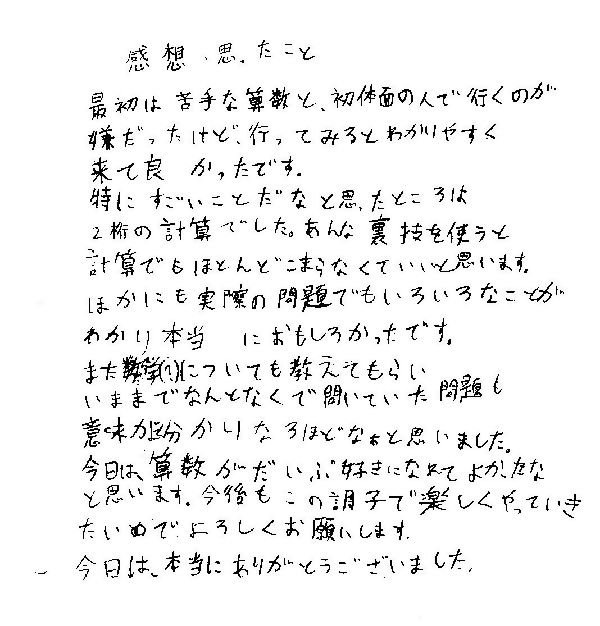 感想・思ったこと
最初は苦手な算数と、初体面の人で行くのが
嫌だったけど、行ってみるとわかりやすく
来て良かったです。
特にすごいことだなと思ったところは
2桁の計算でした。あんな裏技を使うと
計算でもほとんどこまらなくていいと思います。
ほかにも実際の問題でもいろいろなことが
わかり本当におもしろかったです。
また についても教えてもらい
いままでなんとなくで聞いていた問題も
意味が分かりなるほどなぁと思いました。
今日は、算数がだいぶ好きになれてよかったな
と思います。今後もこの調子で楽しくやっていき
たいのでよろしくお願いします。
今日は、本当にありがとうございました。